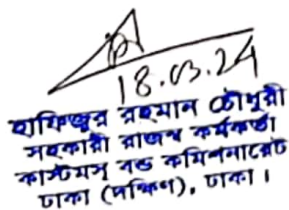 18.03.24
হাফিজুর রহমান চৌধুরী
সহকারী রাজস্ব কর্মকর্তা
কাস্টমস্ বন্ড কমিশনারেট
ঢাকা (দক্ষিণ), ঢাকা।